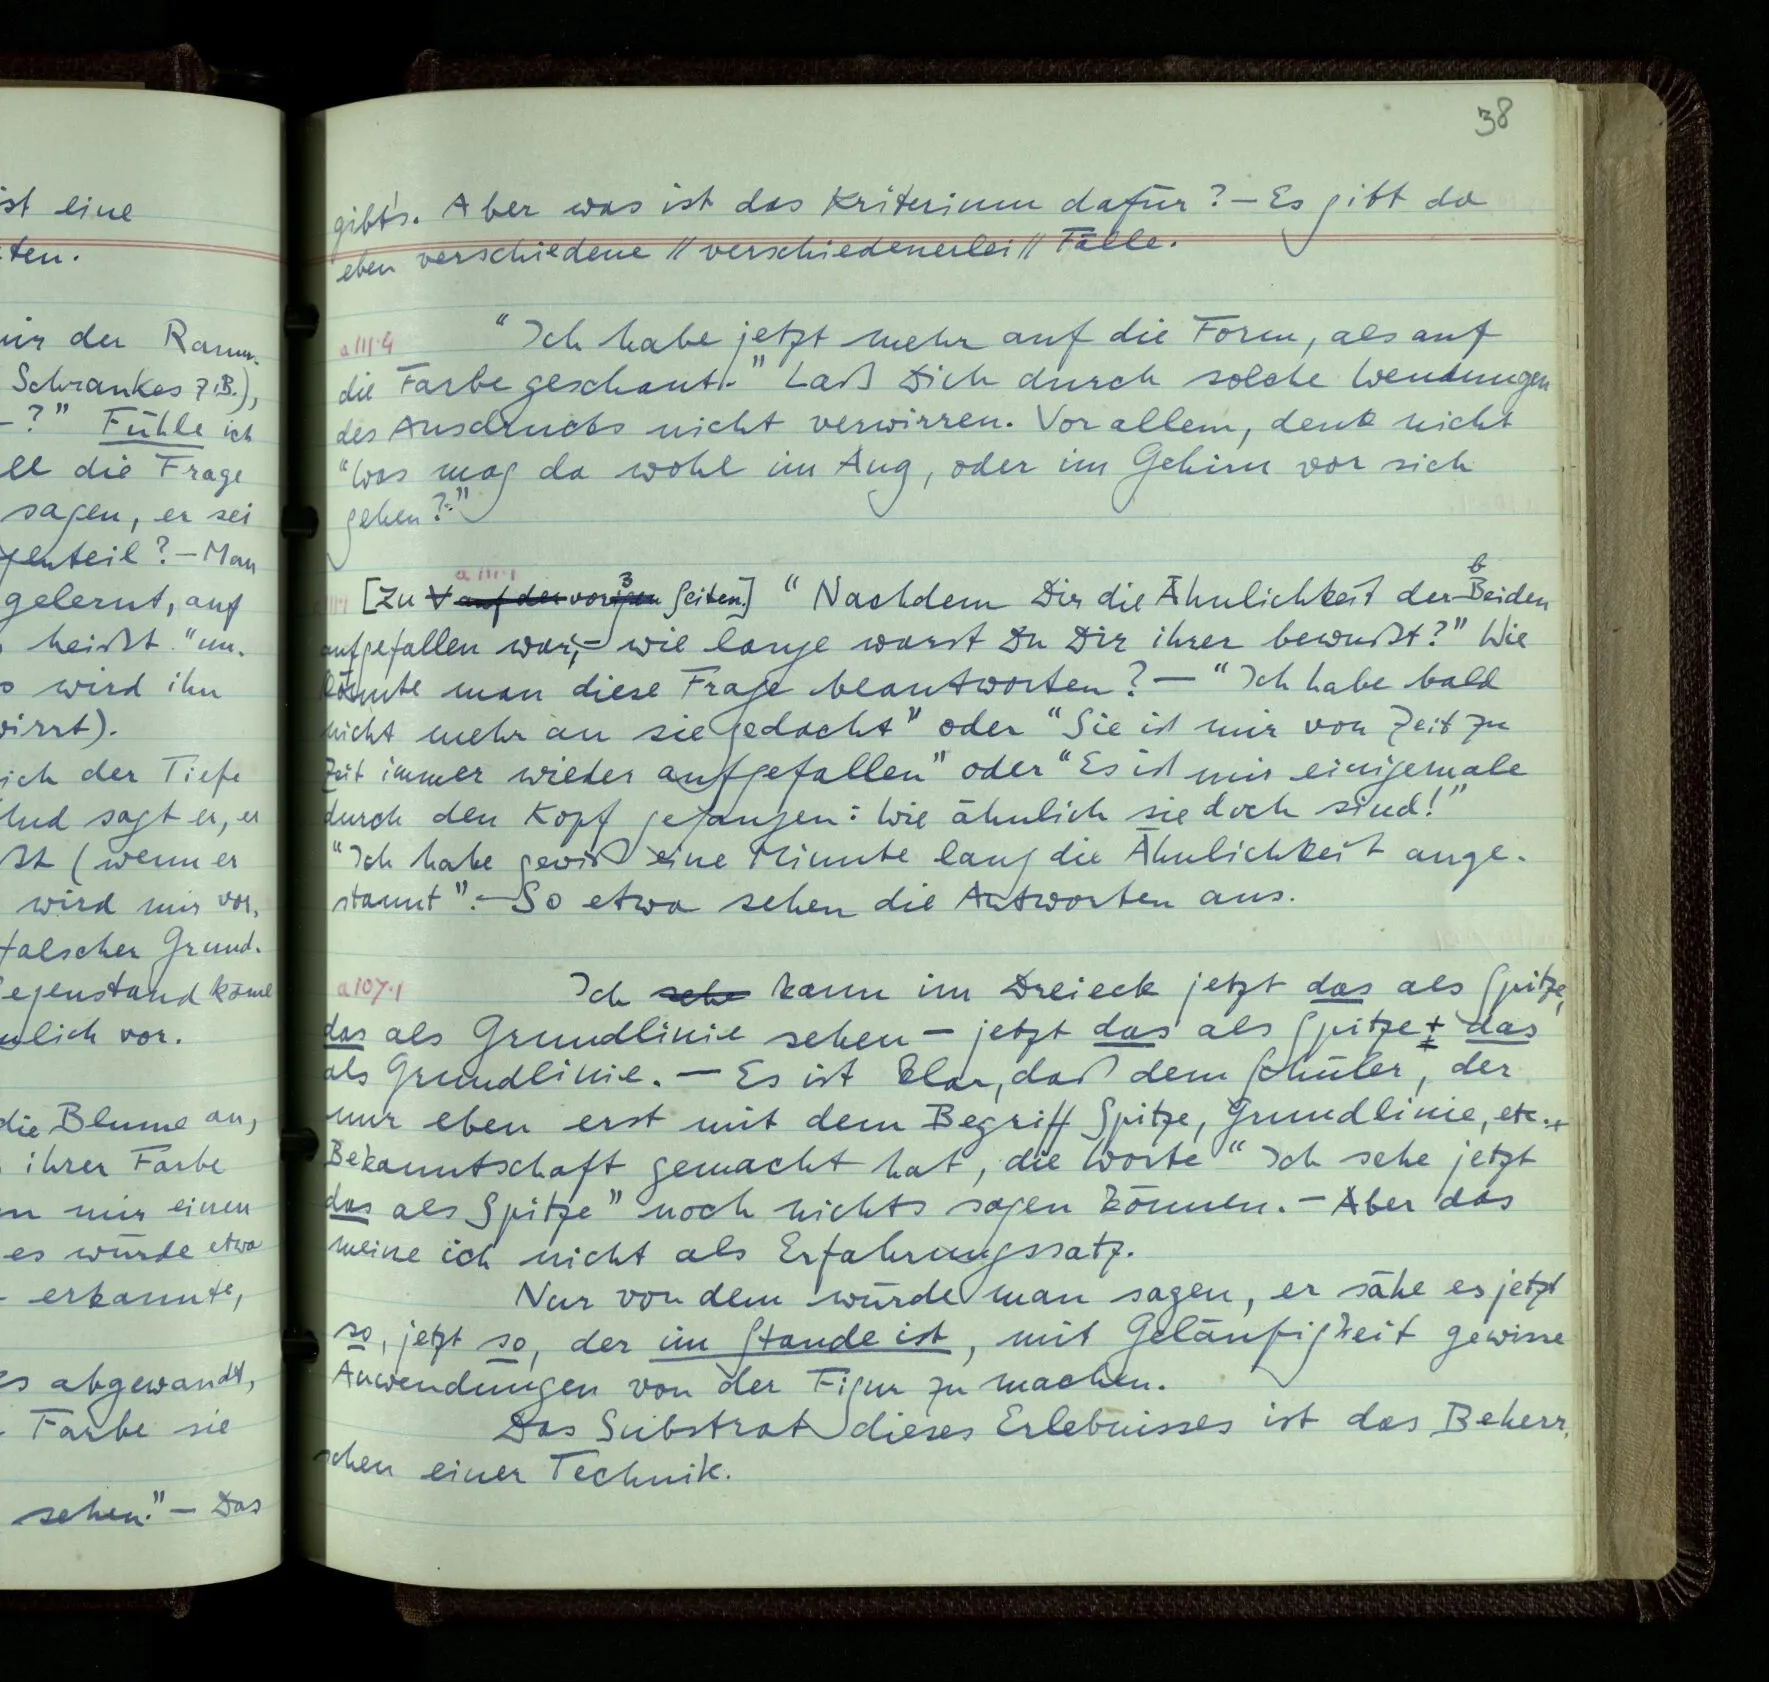 ist eine
ten.
mir der Raum-
Schrankes z.B.),
–?" Fühle ich
ll die Frage
sagen, er sei
genteil? – Man
gelernt, auf
heißt "un-
s wird ihn
wirrt).
ich der Tiefe
Und sagt er, er
ßt (wenn er
wird mir vor,
falscher Grund-
egenstand käme
nlich vor.
die Blume an,
ihrer Farbe
mir einen
es würde etwa
erkannte,
es abgewandt,
Farbe sie
sehen." – Das
38
gibt's. Aber was ist das Kriterium dafür? – Es gibt da
eben verschiedene // verschiedenerlei // Fälle.
a 111.4
"Ich habe jetzt mehr auf die Form, als auf
die Farbe geschaut." Laß Dich durch solche Wendungen
des Ausdrucks nicht verwirren. Vor allem, denk nicht
"Was mag da wohl im Aug, oder im Gehirn vor sich
gehen?"
a 111.1
3
b
[Zu V auf der vorigen Seiten.] "Nachdem Dir die Ähnlichkeit der Beiden
aufgefallen war, – wie lange warst Du Dir ihrer bewußt?" Wie
könnte man diese Frage beantworten? – "Ich habe bald
nicht mehr an sie gedacht" oder "Sie ist mir von Zeit zu
Zeit immer wieder aufgefallen" oder "Es ist mir einigemale
durch den Kopf gegangen: Wie ähnlich sie doch sind!"
"Ich habe gewiß eine Minute lang die Ähnlichkeit ange-
staunt". – So etwa sehen die Antworten aus.
a 107.1
Ich sehe kann im Dreieck jetzt das als Spitze,
das als Grundlinie sehen – jetzt das als Spitze + das
als Grundlinie. – Es ist klar, daß dem Schüler, der
nur eben erst mit dem Begriff Spitze, Grundlinie, etc.
Bekanntschaft gemacht hat, die Worte "Ich sehe jetzt
das als Spitze" noch nichts sagen können. – Aber das
meine ich nicht als Erfahrungssatz.
Nur von dem würde man sagen, er sähe es jetzt
so, jetzt so, der im Stande ist, mit Geläufigkeit gewisse
Anwendungen von der Figur zu machen.
Das Substrat dieses Erlebnisses ist das Beherr-
schen einer Technik.